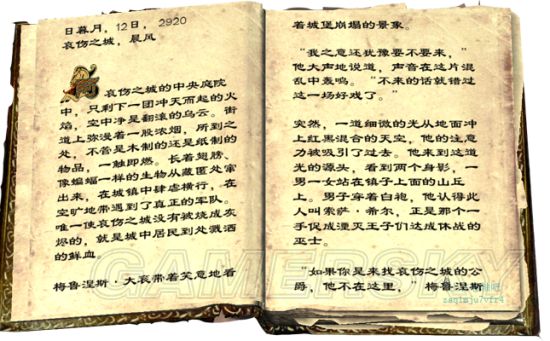 日暮月，12日，2920
哀伤之城，晨风
哀伤之城的中央庭院
中，只剩下一团冲天而起的火
焰，空中净是翻滚的乌云。街
道上弥漫着一股浓烟，所到之
处，不管是木制的还是纸制的
物品，一触即燃。长着翅膀、
像蝙蝠一样的生物从藏匿处窜
出来，在城镇中肆虐横行，在
空旷地带遇到了真正的军队。
唯一使哀伤之城没有被烧成灰
烬的，就是城中居民到处溅洒
的鲜血。
梅鲁涅斯·大衮带着笑意地看
着城堡崩塌的景象。
“我之意还犹豫要不要来，”
他大声地说道，声音在这片混
乱中轰鸣。“不来的话就错过
这一场好戏了。”
突然，一道细微的光从地面冲
上红黑混合的天空，他的注意
力被吸引了过去。他来到这道
光的源头，看到两个身影，一
男一女站在镇子上面的山丘
上。男子穿着白袍，他认得此
人叫索萨·希尔，正是那个一
手促成湮灭王子们达成休战的
巫士。
“如果你是来找哀伤之城的公
爵，他不在这里，”梅鲁涅斯
GAMERSKY
zaqimju7vfr4